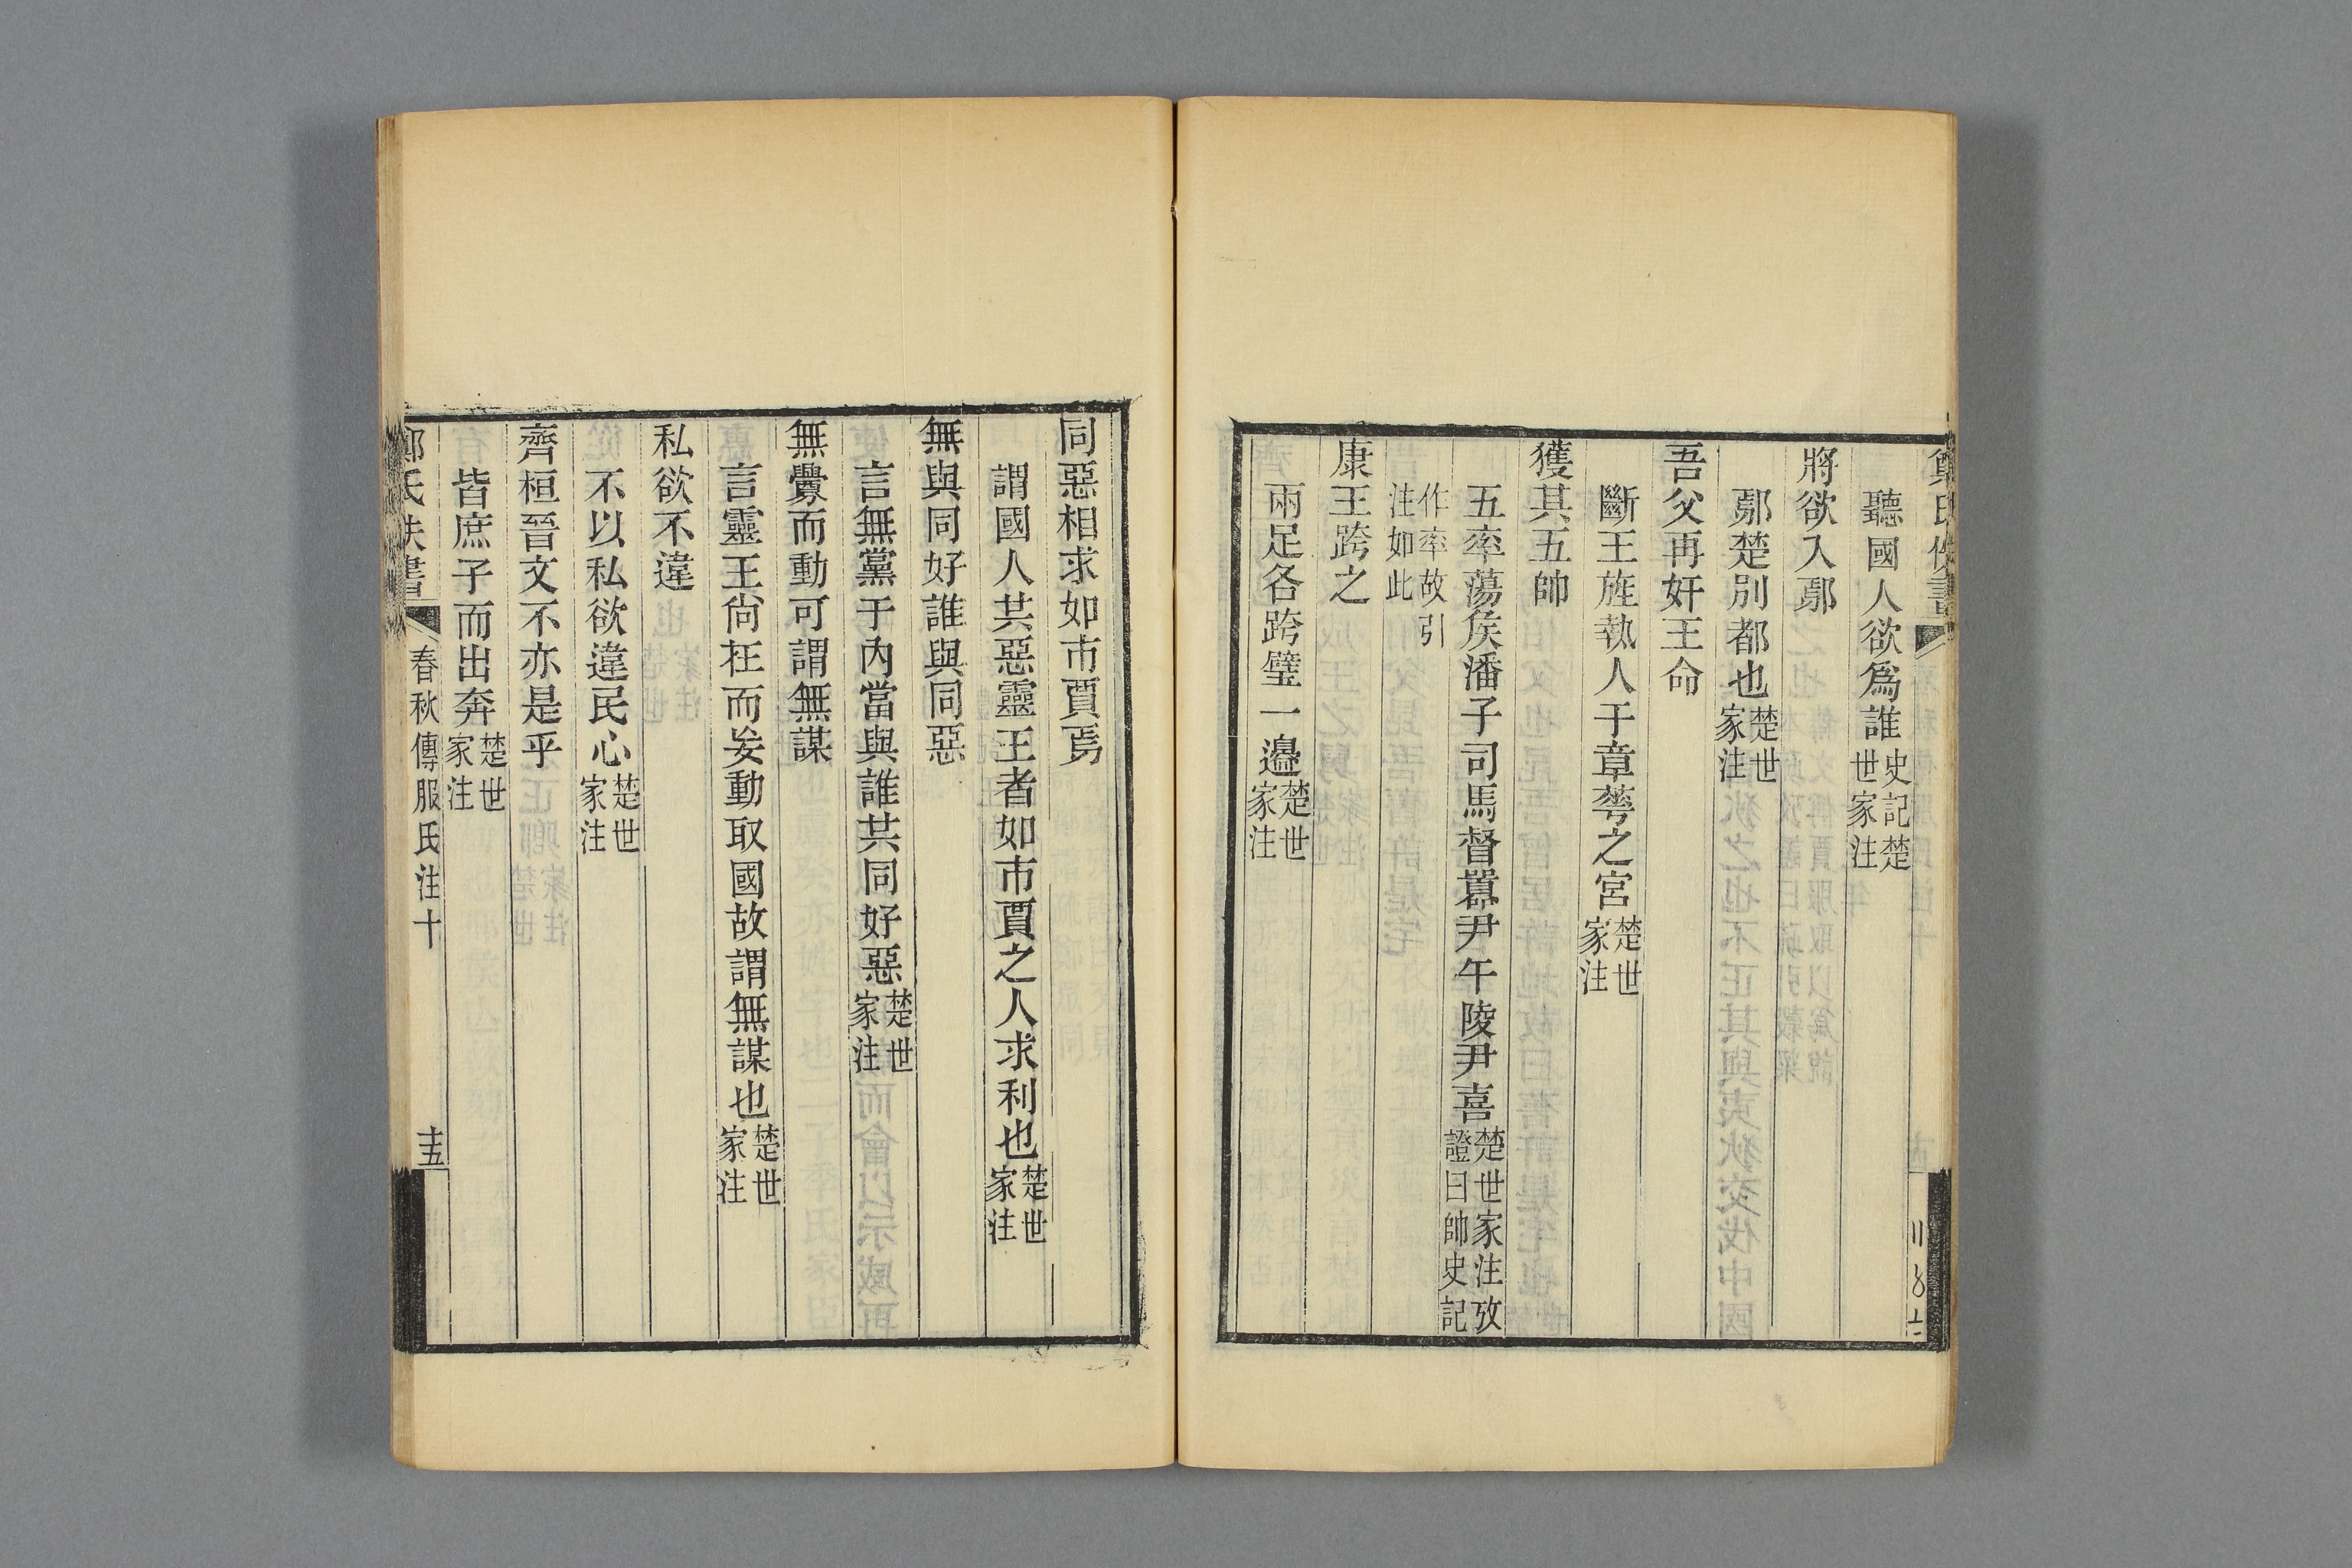 聽國人欲爲誰史記楚世家注
將欲入鄢
鄢楚別都也楚世家注
吾父再奸王命
斷王旌執人于章華之宮楚世家注
獲其五帥
五率蕩矦潘子司馬督嚻尹午陵尹喜楚世家注攷證曰帥史記
作率故引注如此
康王跨之
兩足各跨璧一邉楚世家注
同惡相求如市賈焉
謂國人共惡靈王者如市賈之人求利也楚世家注
無與同好誰與同惡
言無黨于內當與誰共同好惡楚世家注
無釁而動可謂無謀
言靈王尙在而妄動取國故謂無謀也楚世家注
私欲不違
不以私欲違民心楚世家注
齊桓晉文不亦是乎
皆庶子而出奔楚世家注
鄭氏佚書 春秋傳服氏注十 十五